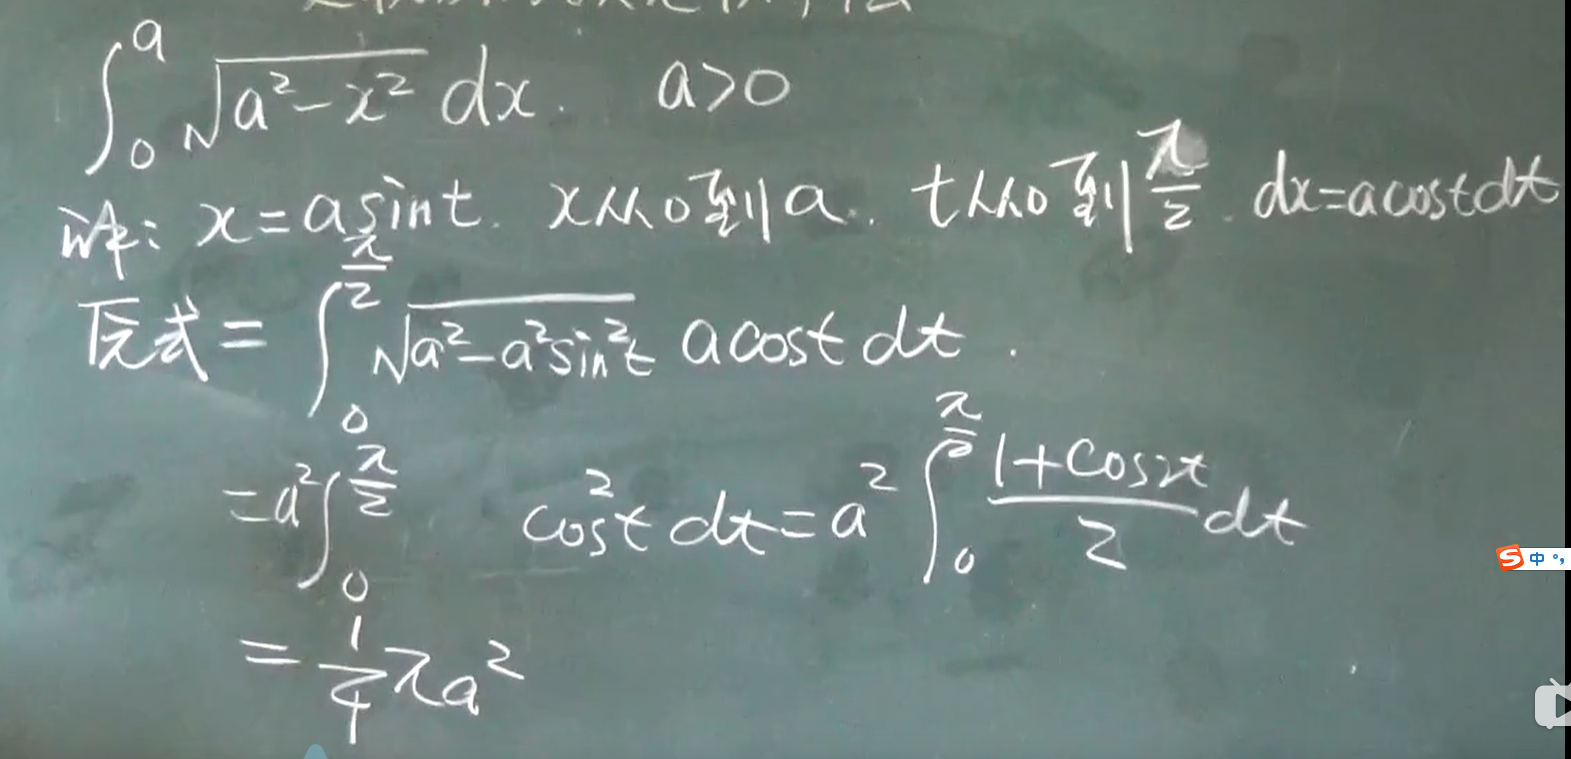 ∫₀ᵃ √(a²-x²) dx. a>0
解: x=asint. x从0到a. t从0到π/2. dx=acostdt
原式=∫₀^(π/2) √(a²-a²sin²t) acost dt.
=a²∫₀^(π/2) cos²t dt=a²∫₀^(π/2) (1+cos2t)/2 dt
=1/4 πa²
中 °,